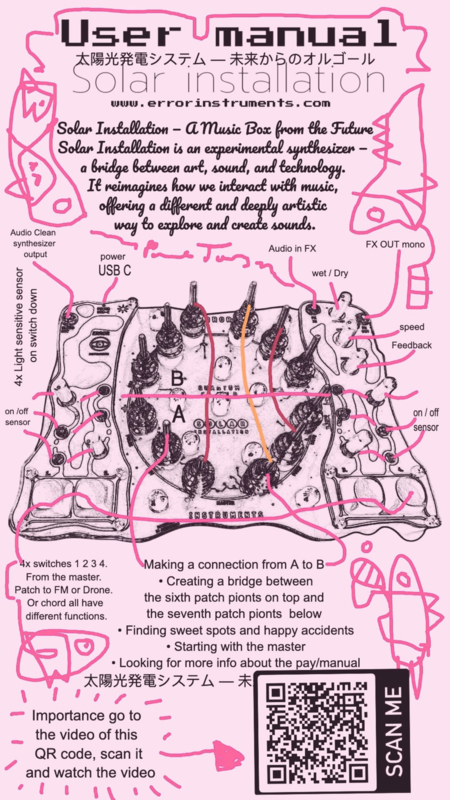 User manual
太陽光発電システム — 未来からのオルゴール
Solar installation
www.errorinstruments.com
Solar Installation – A Music Box from the Future
Solar Installation is an experimental synthesizer –
a bridge between art, sound, and technology.
It reimagines how we interact with music,
offering a different and deeply artistic
way to explore and create sounds.
Audio Clean
synthesizer
output
power
USB C
Audio in FX
FX OUT mono
wet / Dry
speed
Feedback
4x Light sensitive sensor
on switch down
B
A
SOLAR
INSTALLATION
on /off
sensor
on / off
sensor
INSTRUMENTS
4x switches 1 2 3 4.
From the master.
Patch to FM or Drone.
Or chord all have
different functions.
Making a connection from A to B
• Creating a bridge between
the sixth patch pionts on top and
the seventh patch pionts below
• Finding sweet spots and happy accidents
• Starting with the master
• Looking for more info about the pay/manual
太陽光発電システム — 未
Importance go to
the video of this
QR code, scan it
and watch the video
SCAN ME